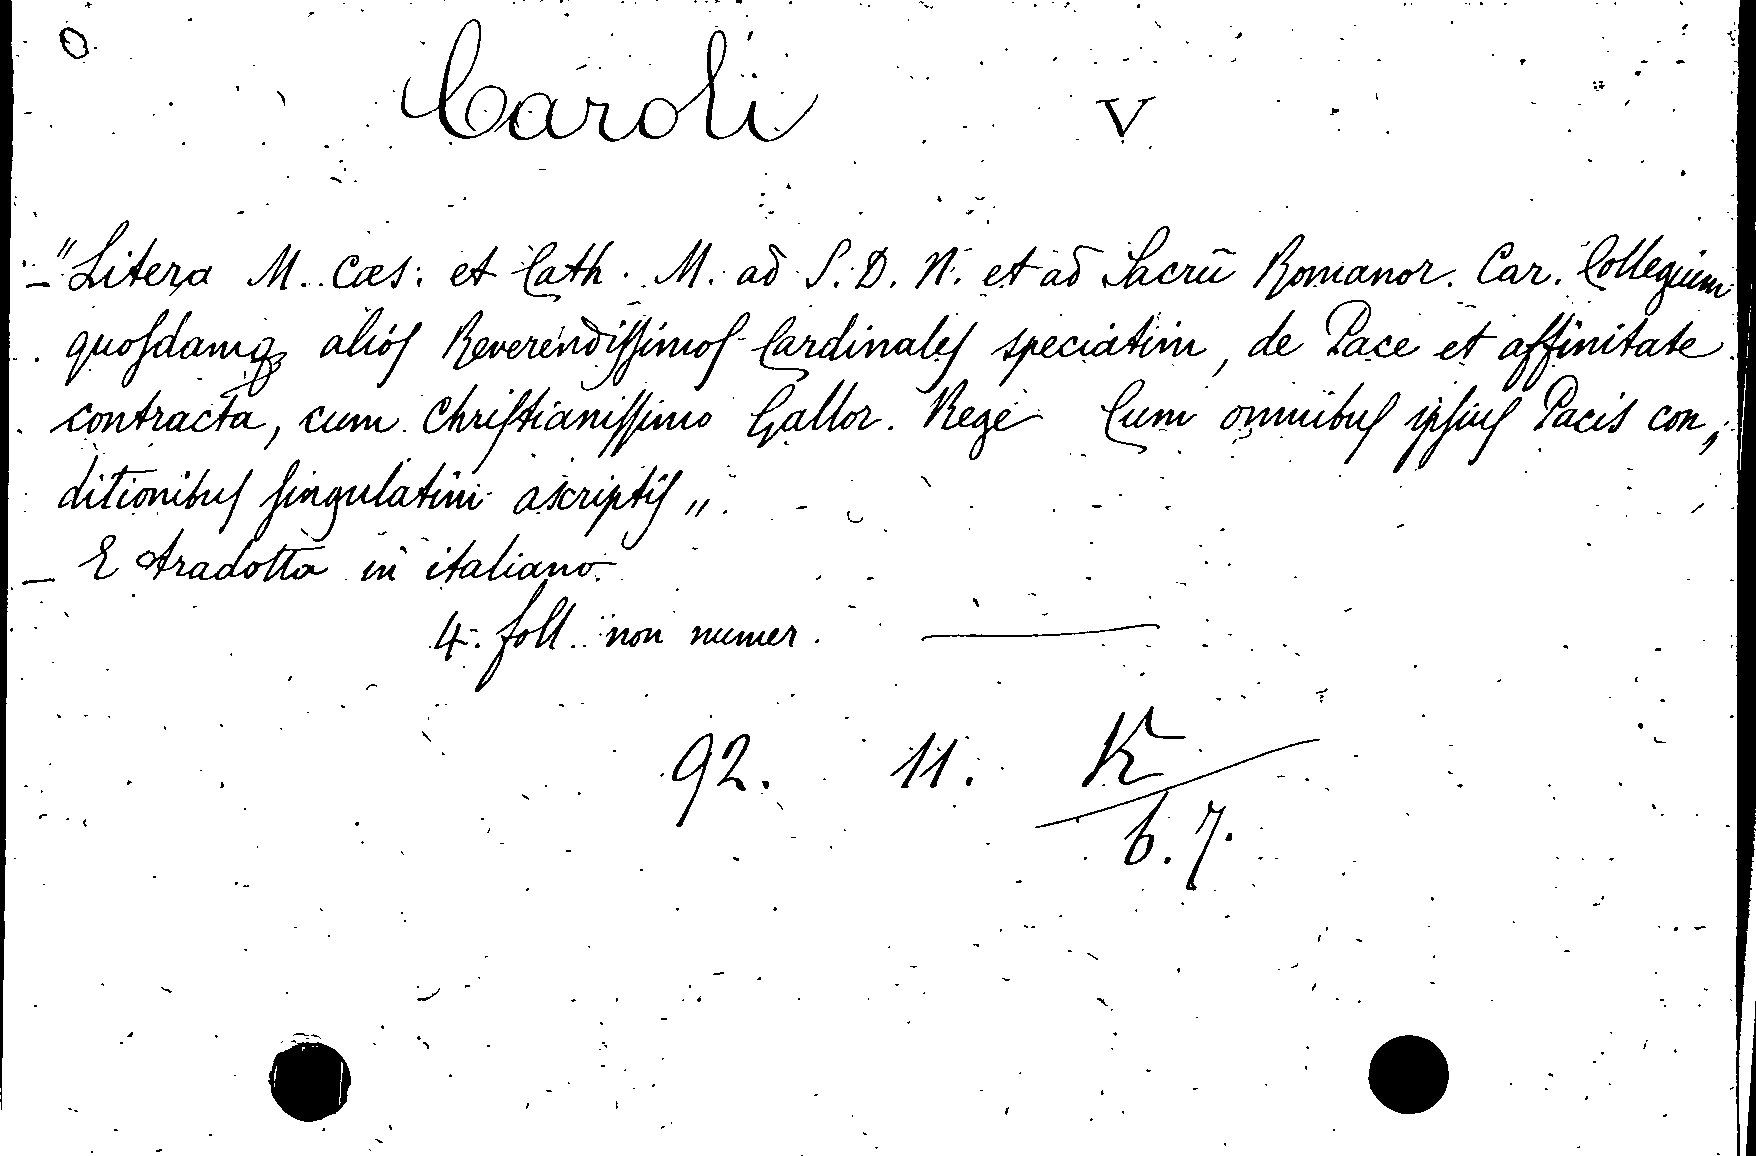 Caroli V
– "Litera M. Cæs. et Cath. M. ad S. D. N. et ad Sacrū Romanor. Car. Collegium
quoſdamq₃ alioſ Reverendiſſimoſ Cardinaleſ speciatim, de Pace et affinitate
contracta, cum Chriſtianiſſimo Gallor. Rege Cum omnibuſ ipſiuſ Pacis con„
ditionibuſ ſingulatim ascriptiſ„.
– E tradotta in italiano.
4. foll. non numer.
92. 11. K
6. 7.